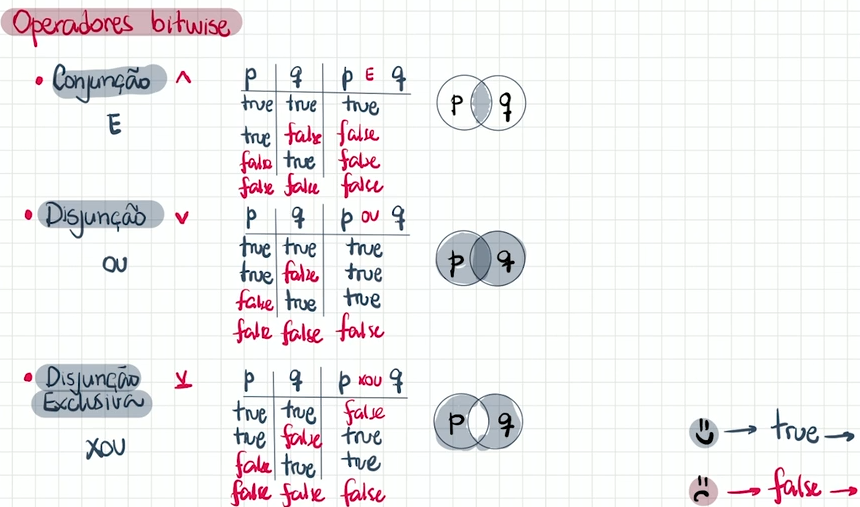 Operadores bitwise
• Conjunção ∧
E
p q p E q
true true true
true false false
false true false
false false false
p q
• Disjunção ∨
OU
p q p OU q
true true true
true false true
false true true
false false false
p q
• Disjunção Exclusiva ⊻
XOU
p q p XOU q
true true false
true false true
false true true
false false false
p q
→ true →
→ false →